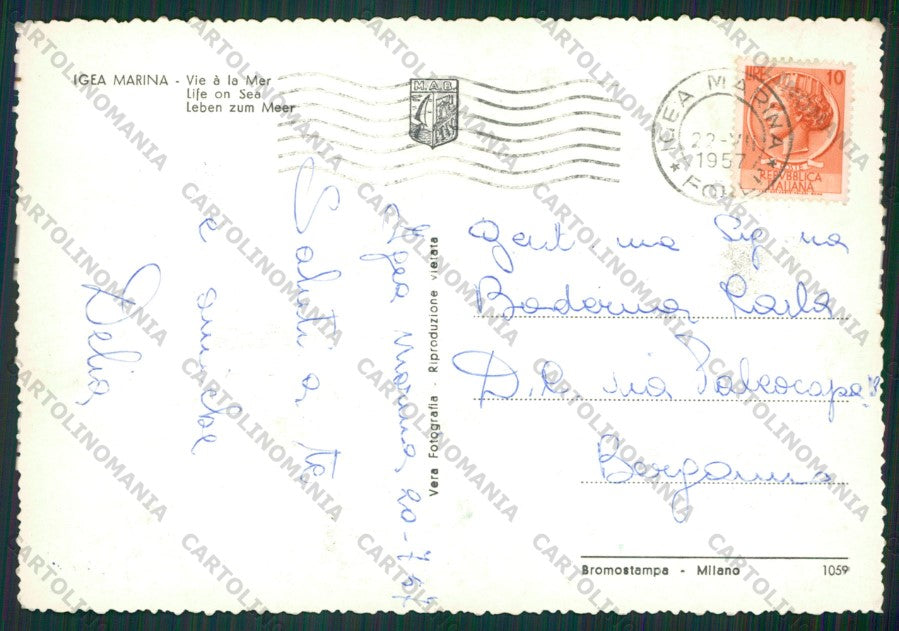 IGEA MARINA - Vie à la Mer
Life on Sea
Leben zum Meer
M.A.B.
IGEA MARINA
1957
FORLI
LIRE 10
REPVBBLICA
ITALIANA
Igea Marina, 20-7-57
Saluti a te
e amiche
Delia
Vera Fotografia - Riproduzione vietata
Gent.ma Sig.na
Carla
via Paleocapa
Bergamo
Bromostampa - Milano
1059
CARTOLINOMANIA